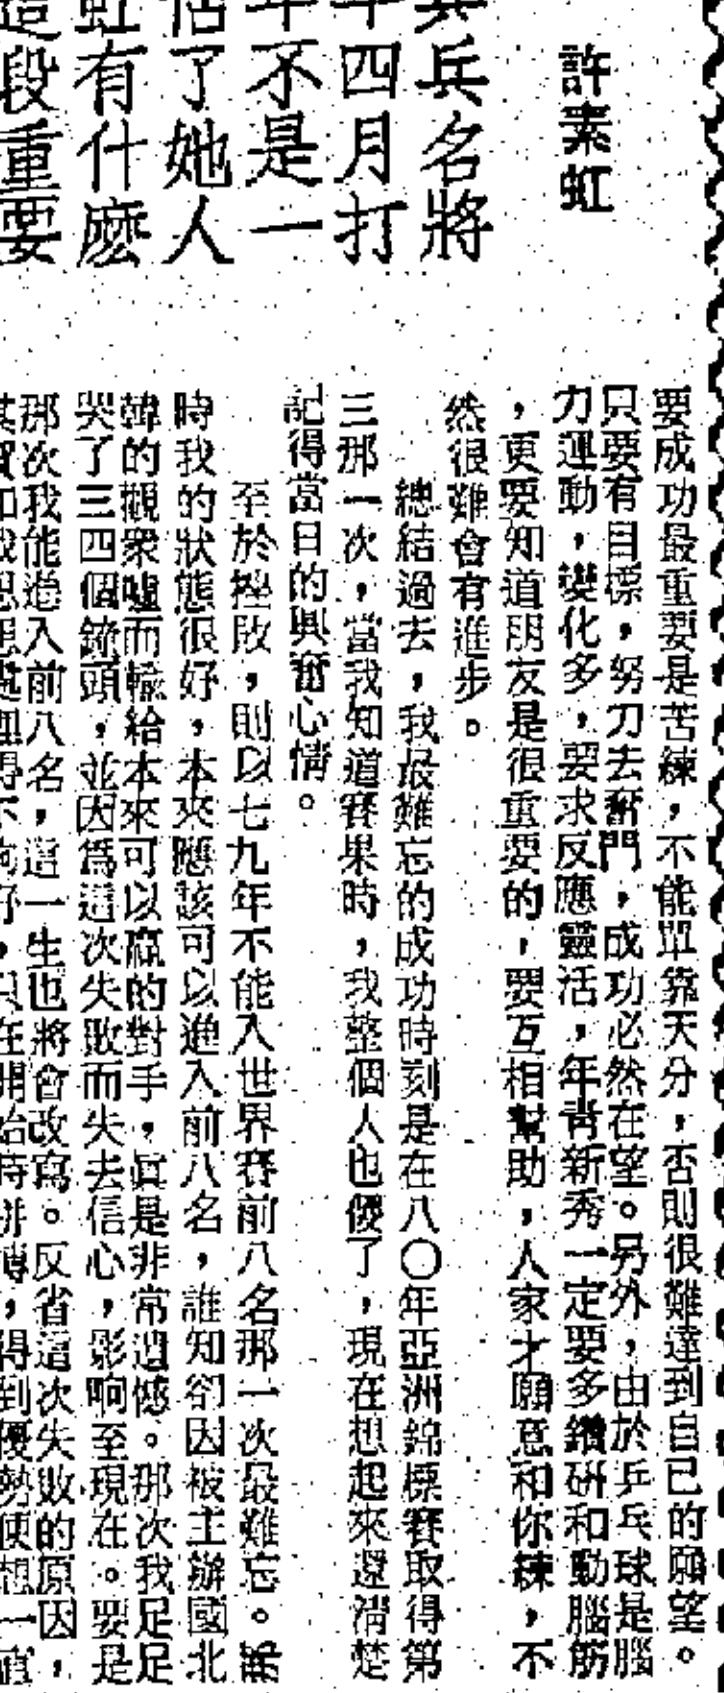 許素虹
兵兵名將
年四月打
年不是一
估了她人
虹有什麽
這段重要
要成功最重要是苦練，不能單靠天分，否則很難達到自己的願望。
只要有目標，努力去奮鬥，成功必然在望。另外，由於乒乓球是腦
力運動，變化多，要求反應靈活，年青新秀一定要多鑽研和動腦筋
，更要知道朋友是很重要的，要互相幫助，人家才願意和你練，不
然很難會有進步。
總結過去，我最難忘的成功時刻是在八〇年亞洲錦標賽取得第
三那一次，當我知道賽果時，我整個人也傻了，現在想起來還清楚
記得當日的興奮心情。
至於挫敗，則以七九年不能入世界賽前八名那一次最難忘。
時我的狀態很好，本來應該可以進入前八名，誰知卻因被主辦國北
韓的觀衆噓而輸給本來可以贏的對手，眞是非常遺憾。那次我足足
哭了三四個鐘頭，並因爲這次失敗而失去信心，影响至現在。要是
那次我能進入前八名，這一生也將會改寫。反省這次失敗的原因，
得不夠好，只在開始時拼搏，得到優勢便想一